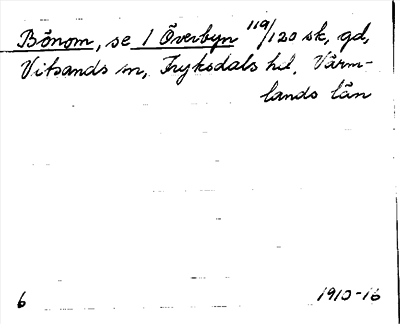 Bönom, se 1 Överbyn 119/120 sk, gd,
Vitsands sn, Fryksdals hd, Värm-
lands län
6 1910-16